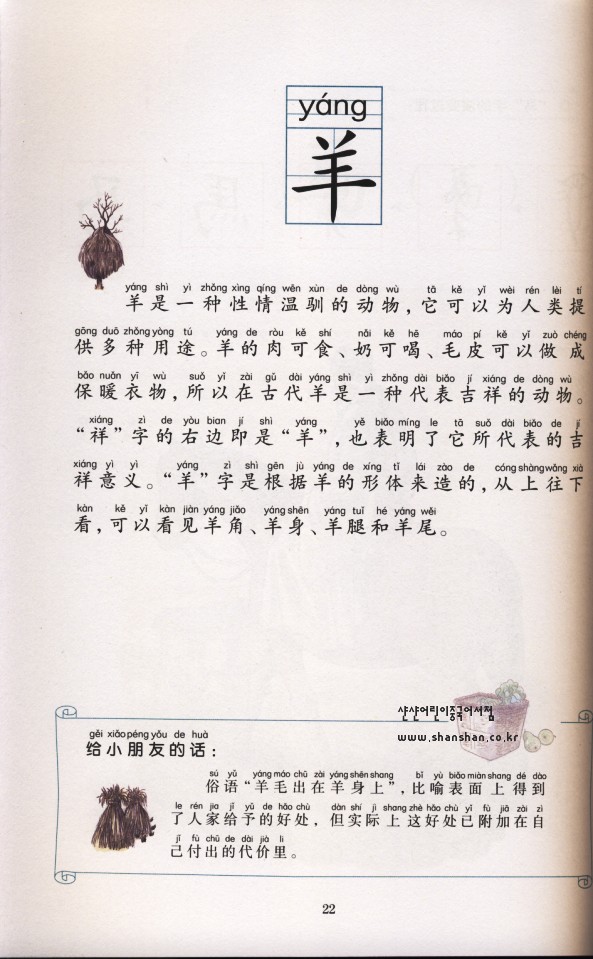 yáng
羊
yáng shì yì zhǒng xìng qíng wēn xùn de dòng wù tā kě yǐ wèi rén lèi tí
羊是一种性情温驯的动物，它可以为人类提
gōng duō zhǒng yòng tú yáng de ròu kě shí nǎi kě hē máo pí kě yǐ zuò chéng
供多种用途。羊的肉可食、奶可喝、毛皮可以做成
bǎo nuǎn yī wù suǒ yǐ zài gǔ dài yáng shì yì zhǒng dài biǎo jí xiáng de dòng wù
保暖衣物，所以在古代羊是一种代表吉祥的动物。
xiáng zì de yòu bian jí shì yáng yě biǎo míng le tā suǒ dài biǎo de jí
“祥”字的右边即是“羊”，也表明了它所代表的吉
xiáng yì yì yáng zì shì gēn jù yáng de xíng tǐ lái zào de cóng shàng wǎng xià
祥意义。“羊”字是根据羊的形体来造的，从上往下
kàn kě yǐ kàn jiàn yáng jiǎo yáng shēn yáng tuǐ hé yáng wěi
看，可以看见羊角、羊身、羊腿和羊尾。
샨샨어린이중국어서점
www.shanshan.co.kr
gěi xiǎo péng yǒu de huà
给小朋友的话：
sú yǔ yáng máo chū zài yáng shēn shang bǐ yù biǎo miàn shang dé dào
俗语“羊毛出在羊身上”，比喻表面上得到
le rén jia jǐ yǔ de hǎo chù dàn shí jì shang zhè hǎo chù yǐ fù jiā zài zì
了人家给予的好处，但实际上这好处已附加在自
jǐ fù chū de dài jià li
己付出的代价里。
22